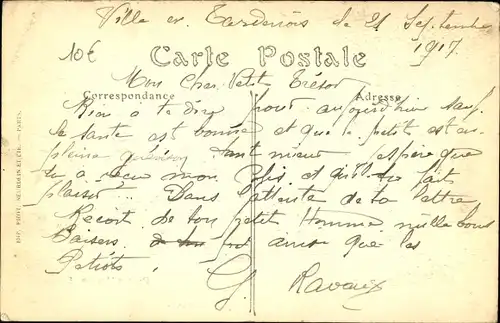 Ville en Tardenois le 21 Septembre
1917.
10€
Carte Postale
Mon Cher Petit Trésor
Correspondance
Adresse
Rien a te dire pour aujourd'hui sauf
la santé est bonne et que petit est en
pleine guérison tant mieux j'espère que
tu a reçu mon Colis et qu'il te fait
plaisir. Dans l'attente de ta lettre
Reçoit de ton petit Homme mille bons
Baisers ainsi que les
Petiots. G. Ravaux